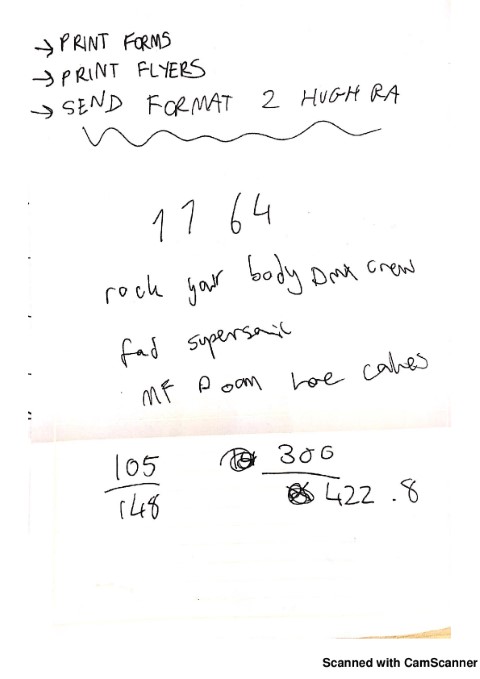 → PRINT FORMS
→ PRINT FLYERS
→ SEND FORMAT 2 HUGH RA
1 1 64
rock your body DMX crew
fad supersonic
MF Doom hoe cakes
105 300
148 422.8
Scanned with CamScanner